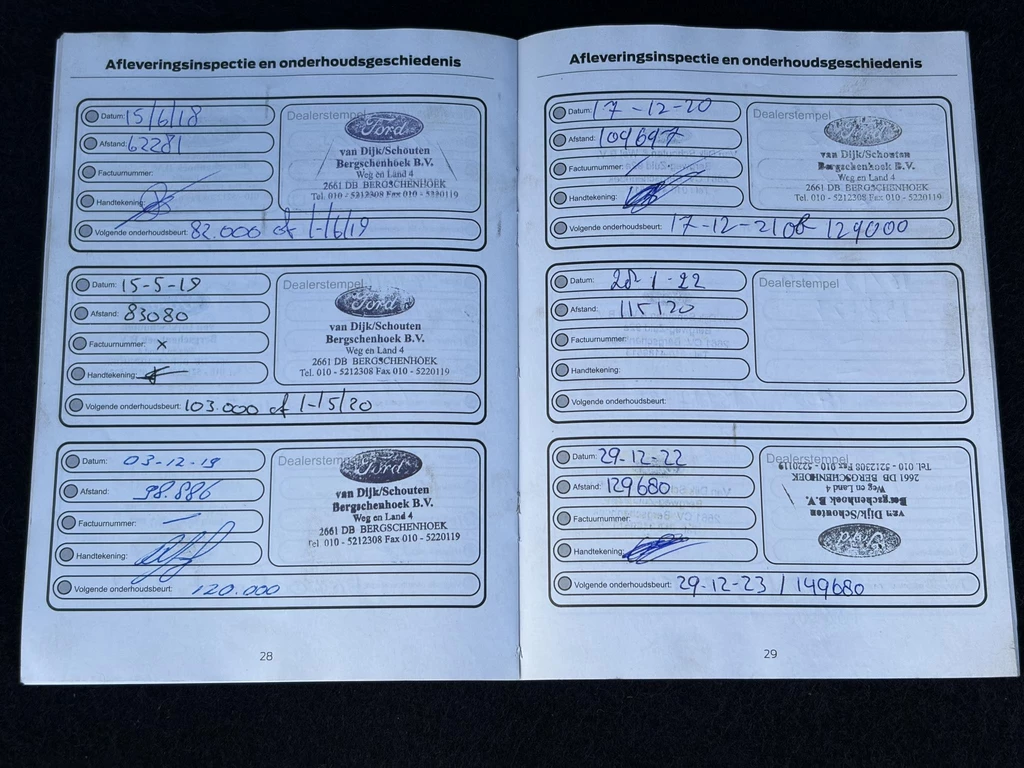 Afleveringsinspectie en onderhoudsgeschiedenis
Datum: 15/6/18
Afstand: 62281
Factuurnummer:
Handtekening:
Volgende onderhoudsbeurt: 82.000 of 1-16/19
Dealerstempel
Ford
van Dijk/Schouten
Bergschenhoek B.V.
Weg en Land 4
2661 DB BERGSCHENHOEK
Tel. 010 - 5212308 Fax 010 - 5220119
Datum: 15-5-19
Afstand: 83080
Factuurnummer: x
Handtekening:
Volgende onderhoudsbeurt: 103.000 of 1-15/20
Dealerstempel
Ford
van Dijk/Schouten
Bergschenhoek B.V.
Weg en Land 4
2661 DB BERGSCHENHOEK
Tel. 010 - 5212308 Fax 010 - 5220119
Datum: 03-12-19
Afstand: 98.886
Factuurnummer: —
Handtekening:
Volgende onderhoudsbeurt: 120.000
Dealerstempel
Ford
van Dijk/Schouten
Bergschenhoek B.V.
Weg en Land 4
2661 DB BERGSCHENHOEK
Tel. 010 - 5212308 Fax 010 - 5220119
28
Afleveringsinspectie en onderhoudsgeschiedenis
Datum: 17-12-20
Afstand: 109697
Factuurnummer:
Handtekening:
Volgende onderhoudsbeurt: 17-12-21 of 129000
Dealerstempel
Ford
van Dijk/Schouten
Bergschenhoek B.V.
Weg en Land 4
2661 DB BERGSCHENHOEK
Tel. 010 - 5212308 Fax 010 - 5220119
Datum: 28-1-22
Afstand: 115120
Factuurnummer:
Handtekening:
Volgende onderhoudsbeurt:
Dealerstempel
Datum: 29-12-22
Afstand: 129680
Factuurnummer:
Handtekening:
Volgende onderhoudsbeurt: 29-12-23 / 149680
Dealerstempel
Ford
van Dijk/Schouten
Bergschenhoek B.V.
Weg en Land 4
2661 DB BERGSCHENHOEK
Tel. 010 - 5212308 Fax 010 - 5220119
29